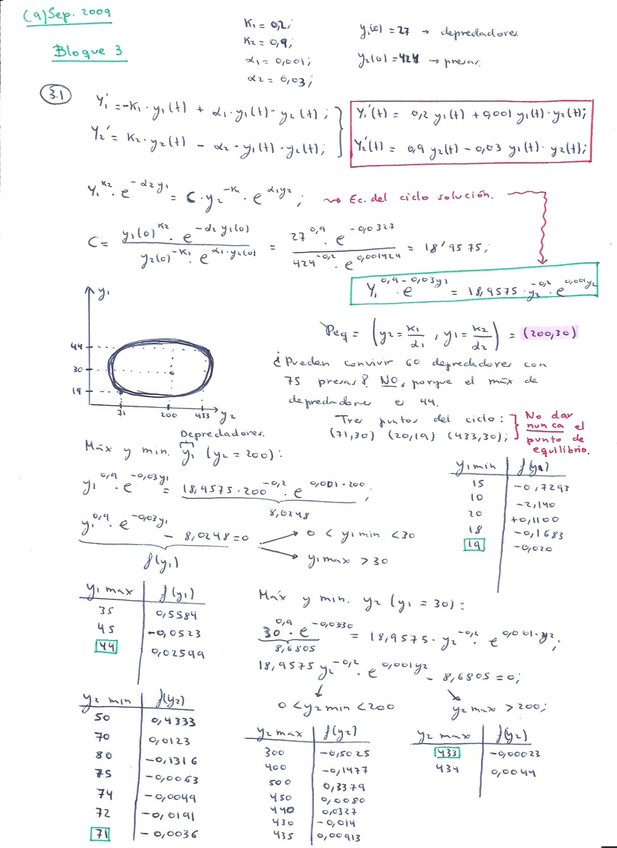 (9) Sep. 2009
Bloque 3
K1 = 0,2;
K2 = 0,9;
α1 = 0,001;
α2 = 0,03;
y1(0) = 27 → depredadores
y2(0) = 424 → presas
3.1
Y1' = -K1 · y1(t) + α1 · y1(t) · y2(t);
Y2' = K2 · y2(t) - α2 · y1(t) · y2(t);
Y1'(t) = 0,2 y1(t) + 0,001 y1(t) · y2(t);
Y2'(t) = 0,9 y2(t) - 0,03 y1(t) · y2(t);
Y1^K2 · e^-α2y1 = C · y2^-K1 · e^α1y2; → Ec. del ciclo solución.
C = y1(0)^K2 · e^-α2 y1(0) / y2(0)^-K1 · e^α1·y2(0) = 27^0,9 · e^-0,0327 / 424^-0,2 · e^0,001424 = 18'9575;
Y1^0,9 · e^-0,03y1 = 18,9575 · y2^-0,2 · e^0,001y2
Peq = (y2 = K1/α1, y1 = K2/α2) = (200,30)
y1
44
30
19
71 200 433 y2
¿Pueden convivir 60 depredadores con
75 presas? NO, porque el máx de
depredadores es 44.
Tres puntos del ciclo:
(71,30) (20,19) (433,30);
No dar
nunca el
punto de
equilibrio.
Depredadores.
Máx y min. y1 (y2 = 200):
y1^0,9 · e^-0,03y1 = 18,9575 · 200^-0,2 · e^0,001·200;
8,0248
y1^0,9 · e^-0,03y1 - 8,0248 = 0
f(y1)
→ 0 < y1 min < 30
→ y1 max > 30
y1 min f(y1)
15 -0,7293
10 -2,140
20 +0,1100
18 -0,1683
19 -0,020
y1 max f(y1)
35 0,5584
45 -0,0523
44 0,02599
Máx y min. y2 (y1 = 30):
30^0,9 · e^-0,0330 = 18,9575 · y2^-0,2 · e^0,001·y2;
8,6805
18,9575 y2^-0,2 · e^0,001y2 - 8,6805 = 0;
0 < y2 min < 200
y2 max > 200;
y2 min f(y2)
50 0,4333
70 0,0123
80 -0,1316
75 -0,0063
74 -0,0049
72 -0,0191
71 -0,0036
y2 max f(y2)
300 -0,5025
400 -0,1477
500 0,3379
450 0,0080
440 0,0327
430 -0,014
435 0,00913
y2 max f(y2)
433 -0,00023
434 0,0044